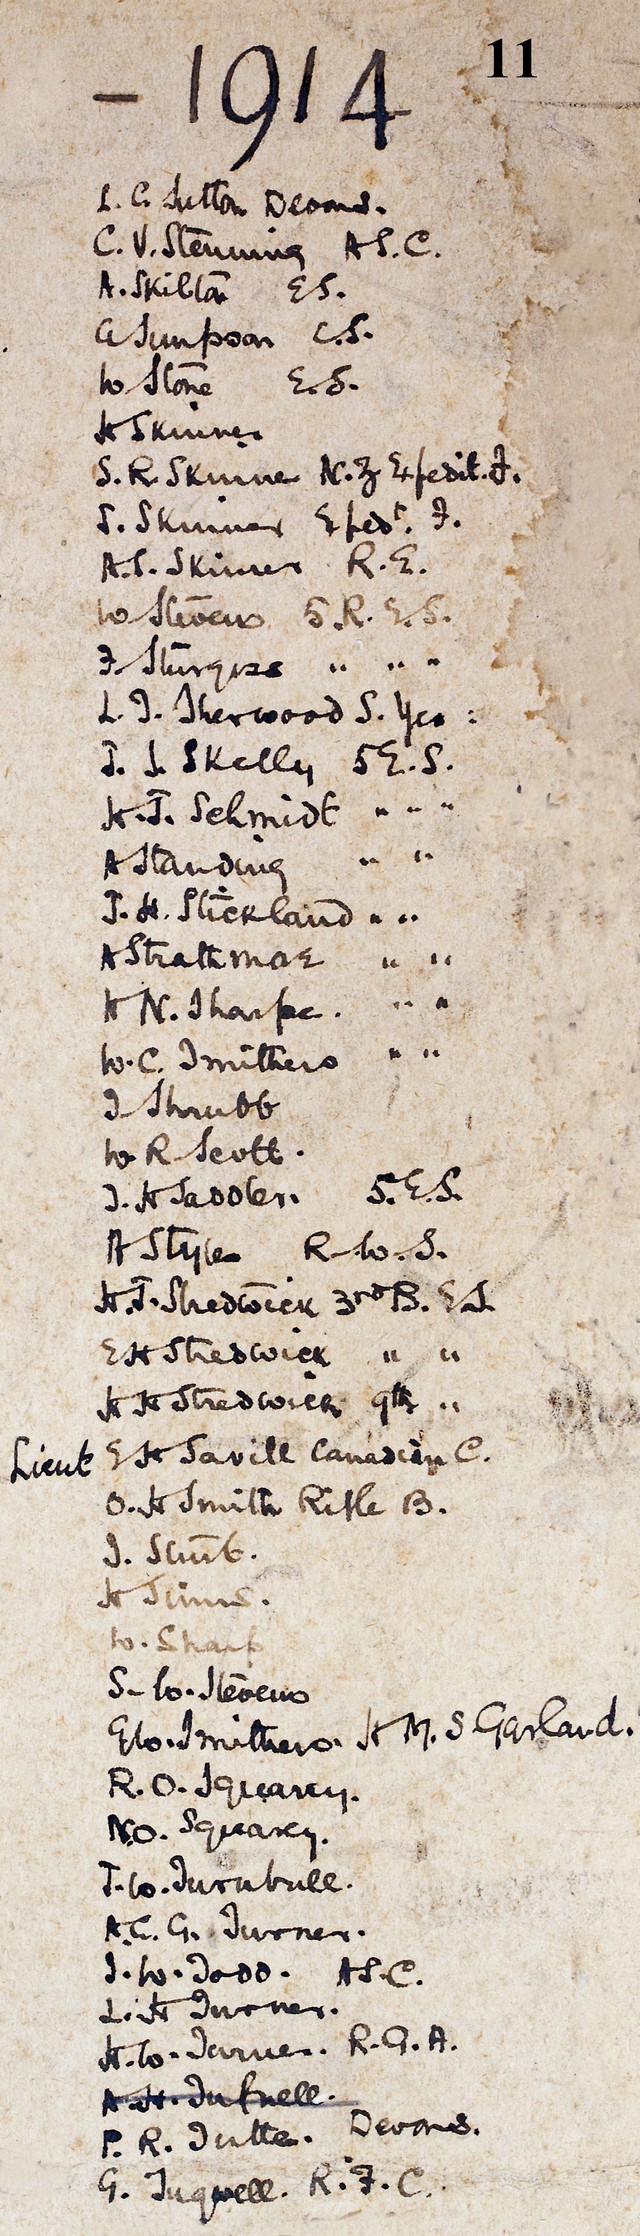 - 1914 11
L. C. Sutton Devons.
C. V. Stenning A S. C.
A. Skilton E S.
G Simpson E. S.
W Stone E. S.
H Skinner
S. R. Skinner N. Z Expedit. F.
S. Skinner Exped. F.
A. S. Skinner R. E.
W Stevens 5 R. E. S.
F Sturgess " " "
L. J. Sherwood S. Yeo :
T. J. Skelly 5 E. S.
H. T. Schmidt " " "
A Standing " "
T. H. Stickland " "
A Strathmoe " "
H N. Sharpe. " "
W. C. Smithers " "
J Shrubb
W R Scott.
J. H Saddler. 5. E. S.
A Style R. W. S.
H. T. Stredwick 3rd B. E S.
E H Stredwick " "
H H Stredwick 9th "
Lieut E H Savill Canadian C.
O. H Smith Rifle B.
J.
H
W. Sharp
S. W. Stevens
G W. Smithers. H M. S Garland.
R. O. Squarey.
N. O. Squarey.
T. W. Turnbull.
A. C. G. Turner.
J. W. Todd. A S. C.
L. H Turner.
H. W. Turner. R. G. A.
A. H. Tufnell.
P. R. Devons.
G. Tugwell. R. F. C.